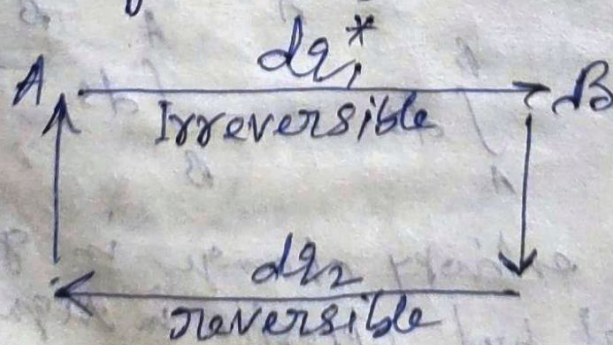 dq₁*
A B
Irreversible
dq₂
reversible